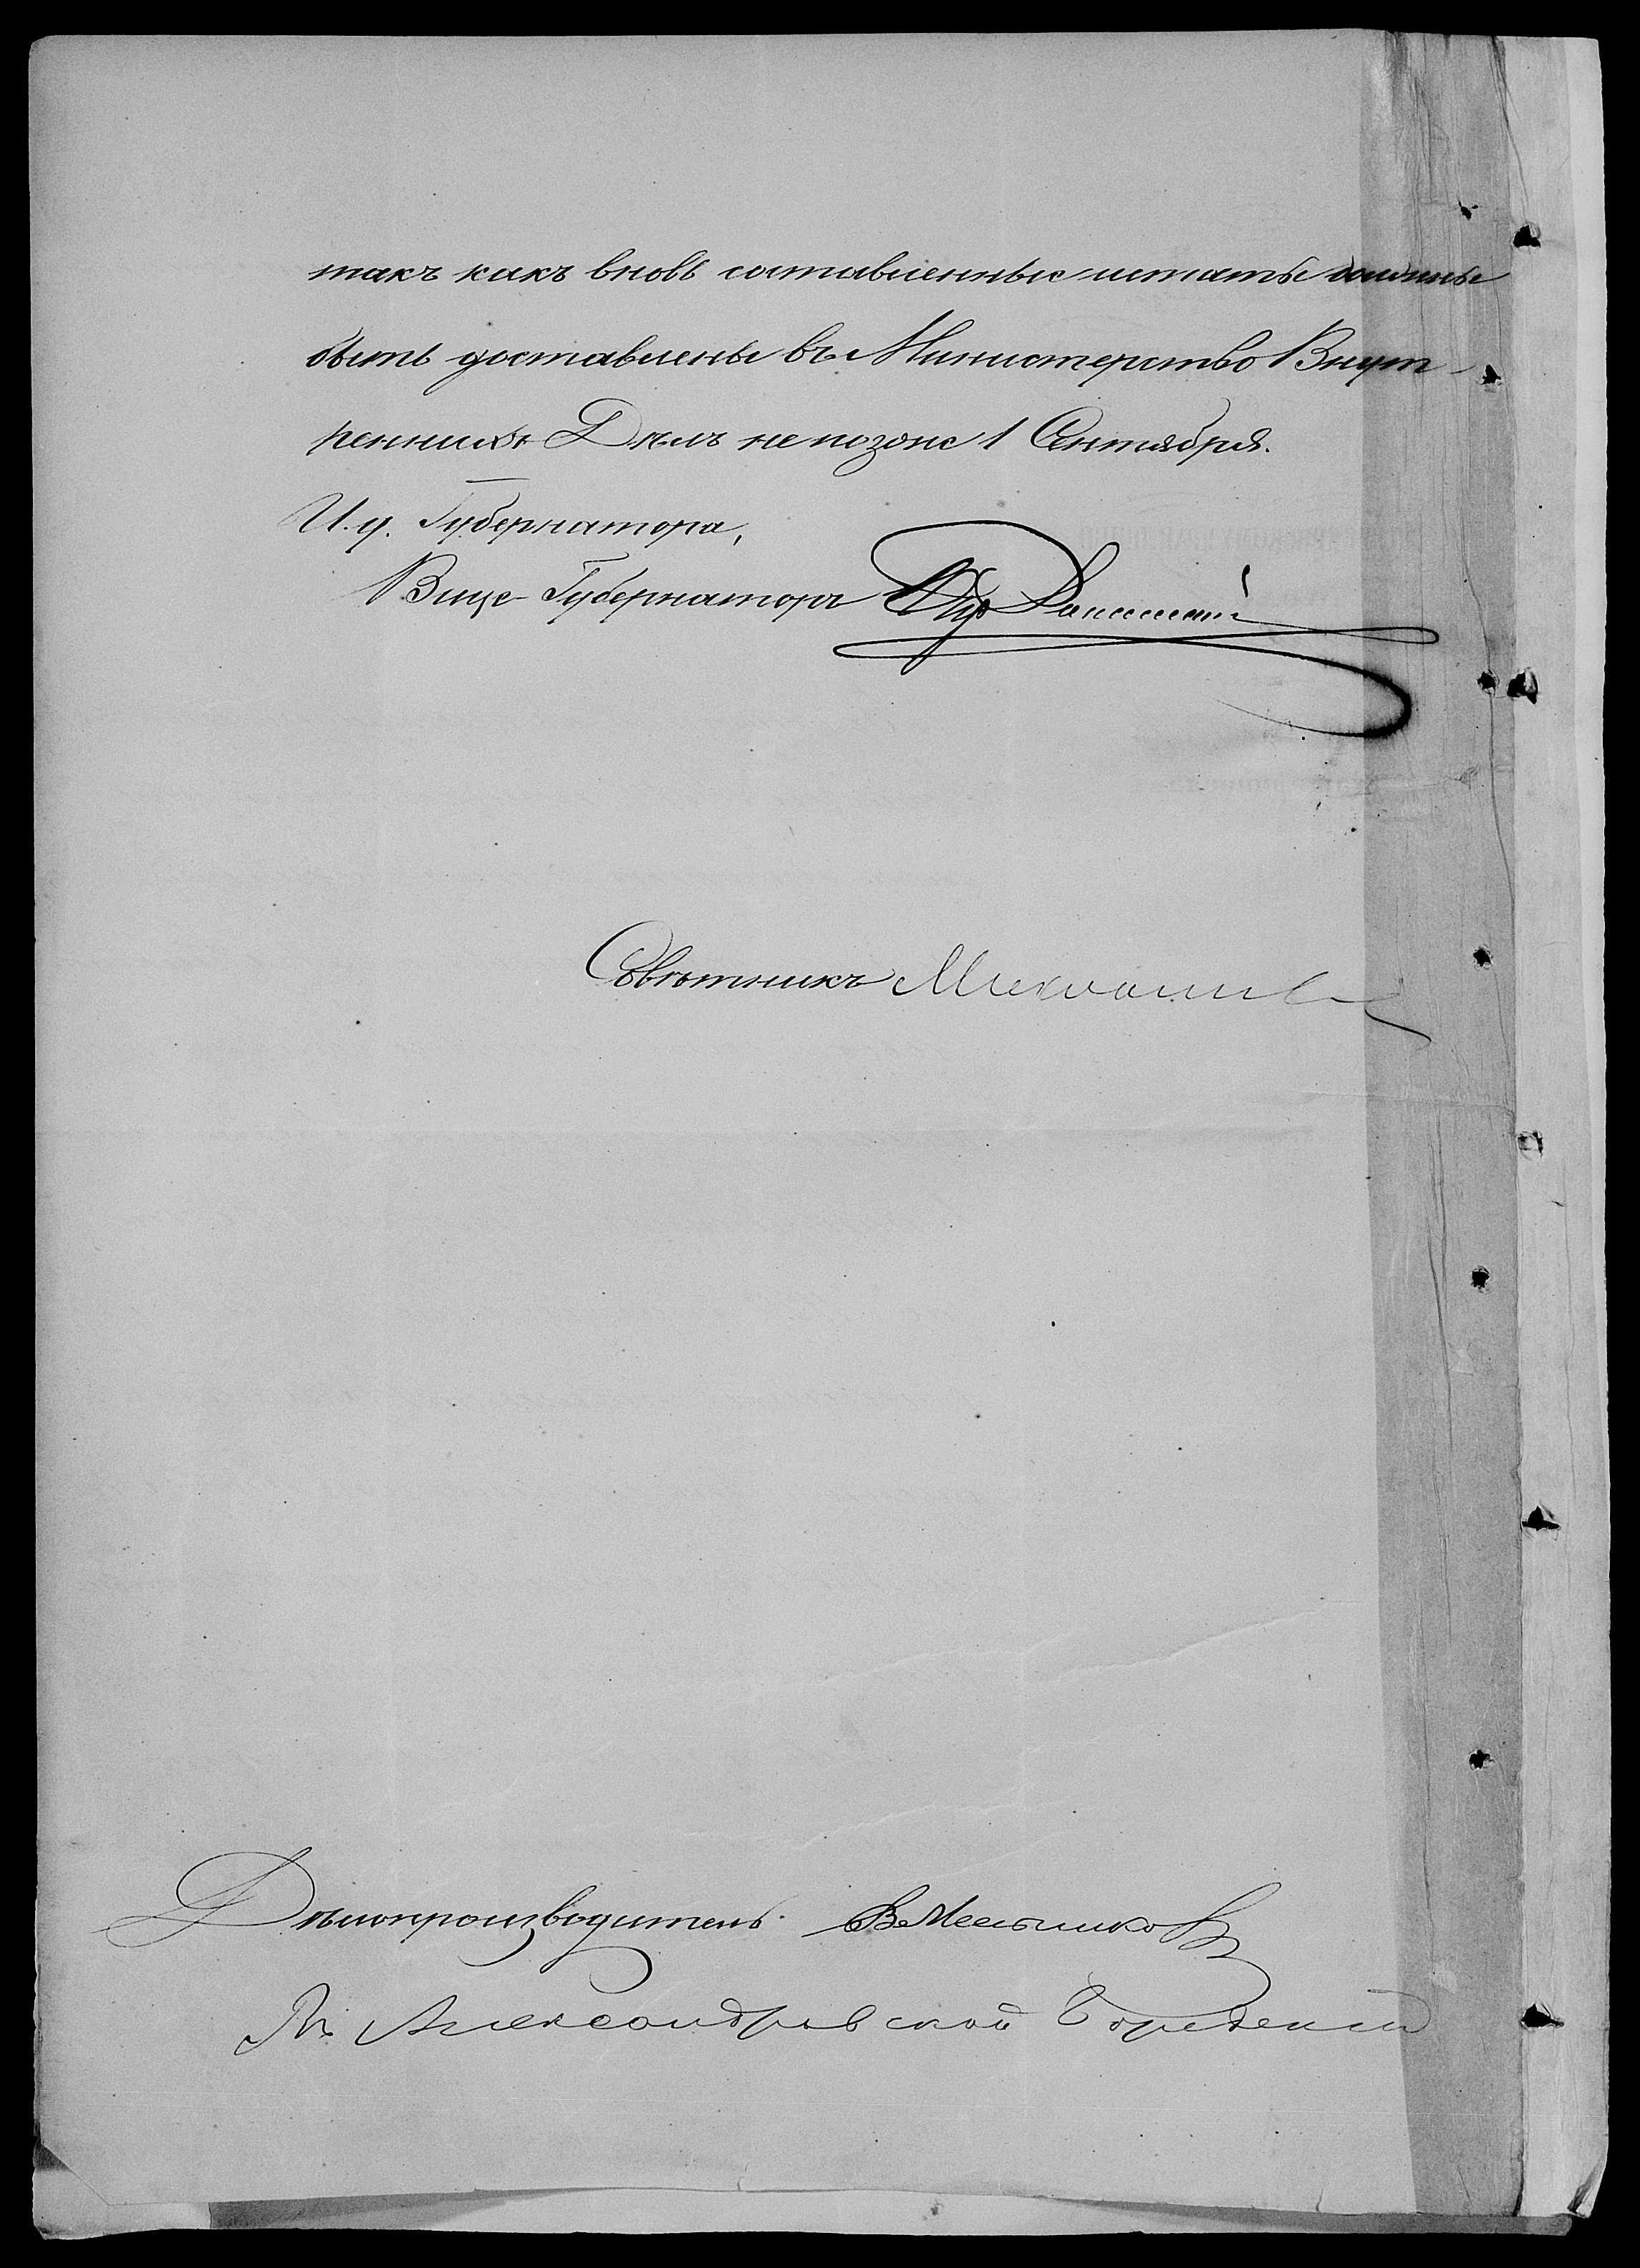 такъ какъ вновь составленные штаты должны
быть доставлены въ Министерство Внут-
реннихъ Дѣлъ не позже 1 Сентября.
И. д. Губернатора,
Вице-Губернаторъ
Совѣтникъ
Дѣлопроизводитель В Мельниковъ
Александровской